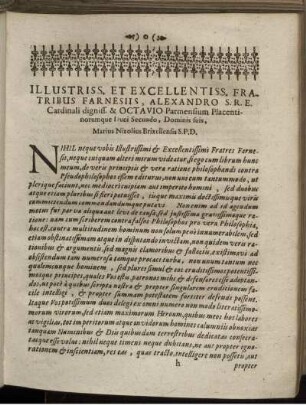 ILLUSTRISS. ET EXCELLENTISS. FRA-
TRIBUS FARNESIIS, ALEXANDRO S.R.E.
Cardinali digniss. & OCTAVIO Parmensium Placenti-
norumque Duci Secundo, Dominis suis,
Marius Nizolius Brixellensis S.P.D.
NIHIL neque vobis Illustrissimi & Excellentissimi Fratres Farne-
sii, neque cuiquam alteri mirum videatur, si ego cum librum hunc
meum, de veris principiis & vera ratione philosophandi contra
Pseudophilosophos essem editurus, non uni eam tantummodo, ut
plerique faciunt, eos mediocri cuipiam aut imperato homini, sed duobus
atque etiam pluribus si fieri potuisset, iisque maximis doctissimisque viris
commendatum custoditumque
ratione: nam cum scriberem contra falsos Philosophos pro vera Philosopha,
hoc est, contra multitudinem hominum non solum penè innumerabilem, sed
etiam obstinatissimam atque in disputando invictam, non quidem vera ra-
tionibus & argumentis, sed magnis clamoribus & saeculis, existimavi ad
obsistendum tam numerosa tamque procaci turba, non unum tantum nec
qualemcunque hominem, sed plures simul & eos eruditissimos potentissi-
mosque principes, quales Vos estis, patronos mihi & defensores esse adoptan-
dos, ut post à quibus scripta nostra & propter singularem eruditionem fa-
cilè intelligi, & propter summam potestatem fortiter defendi possint.
Itaque Vos potissimum duos delegi ex omni numero non modo literatissimo-
rum virorum, sed etiam maximorum Heroum, quibus meos hos labores
ac vigilias, tot imperitorum atque invidorum hominum calumniis obnoxias
tanquam Numinibus & Diis quibusdam terrestribus dedicatas consecra-
tasque esse volui: nihil usque timens neque dubitans, ne aut propter igno-
rationem & inscientiam, res eas, quas tracto, intelligere non possetis, aut
h propter